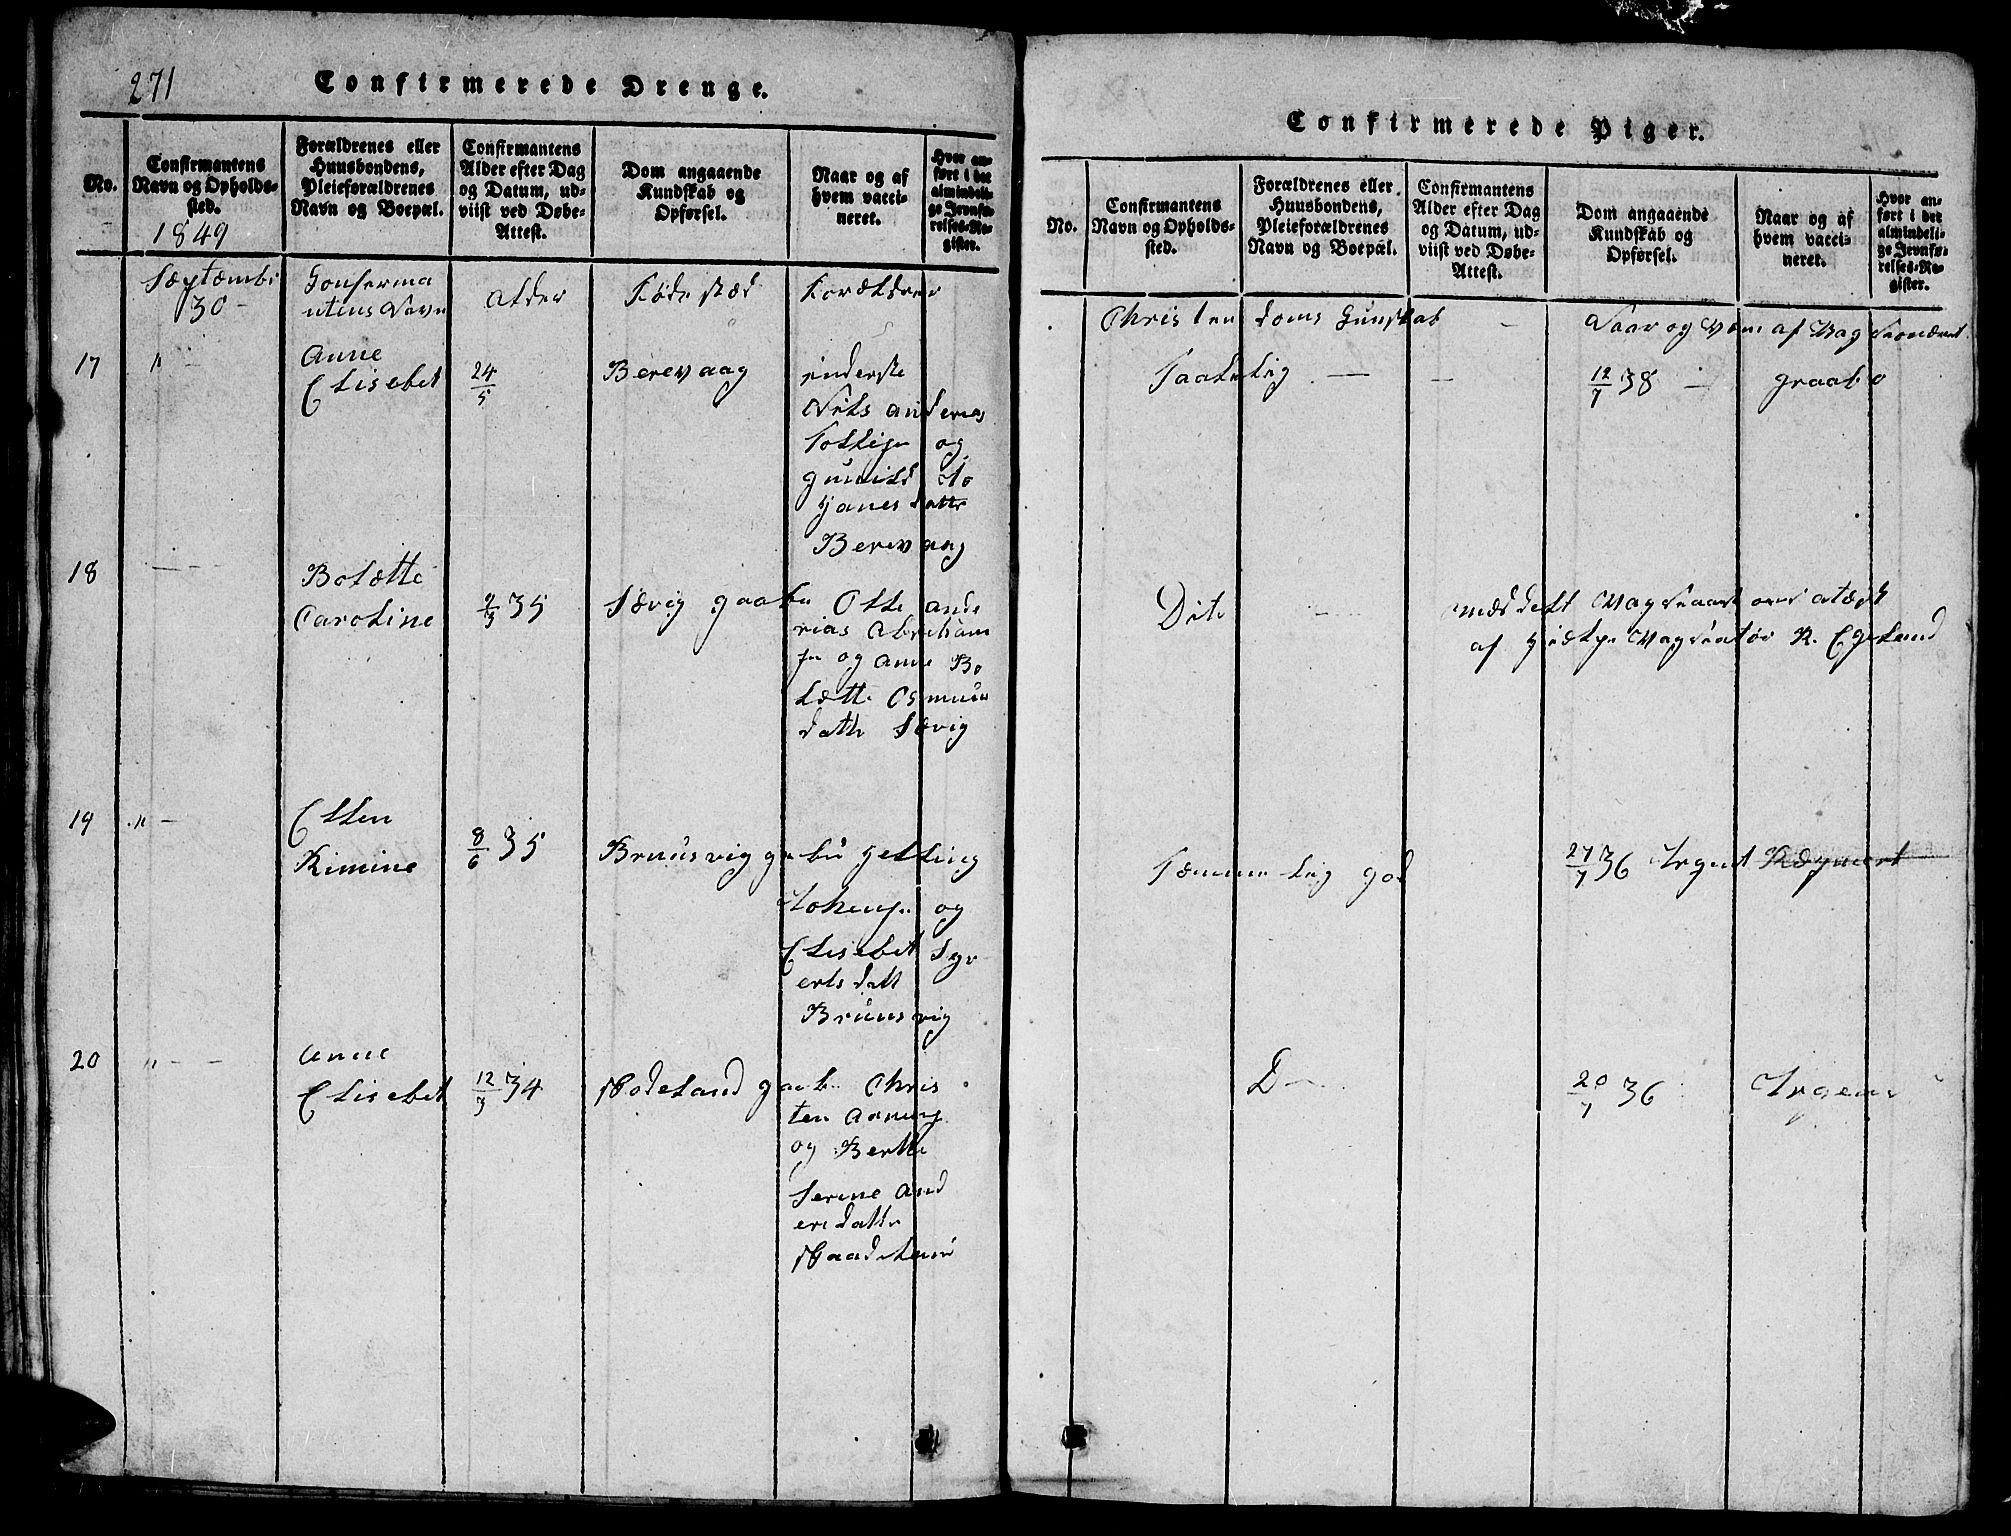 271
Confirmerede Drenge.
No.
Confirmantens
Navn og Opholds-
sted.
1849
Forældrenes eller
Huusbondens,
Pleieforældrenes
Navn og Boepæl.
Confirmantens
Alder efter Dag
og Datum, ud-
viist ved Døbe-
Attest.
Dom angaaende
Kundskab og
Opførsel.
Naar og af
hvem vacci-
neret.
Hvor an-
ført i det
almindeli-
ge Jevnfø-
relses-Re-
gister.
Sæptæmbr
30 -
Gonferma
ntens Navn
alder
Føde stæd
Forældrer
17
"
Anne
Elisebet
24/5
Berevaag
inderste
Nils anderias
Tollisen og
gunild Jo
hanes datter
Berevaag
18
Bolætte
Caroline
9/3 35
Sævig gaabr
Olle ande
rias Abreham
sen og anne Bo
lætte Osmun
datter Sævig
19
"
Ellen
Rimine
8/6 35
Bruusvig
Jelling
og
Elisebet
datt
Bruunsvig
20
"
Anne
Elisebet
12/3 34
Chris
ten
og Berthe
Serine And
ers datter
Confirmerede Piger.
No.
Confirmantens
Navn og Opholds-
sted.
Forældrenes eller
Huusbondens,
Pleieforældrenes
Navn og Boepæl.
Confirmantens
Alder efter Dag
og Datum, ud-
viist ved Døbe-
Attest.
Dom angaaende
Kundskab og
Opførsel.
Naar og af
hvem vacci-
neret.
Hvor an-
ført i det
almindeli-
ge Jevnfø-
relses-Re-
gister.
Christen doms Gunskab
Naar og Vem af Vag
Taalelig
12/7 38
graabo
Dito
af
R. Egeland
Tæmmelig god
27/7 36
D
20/7 36
Irgens